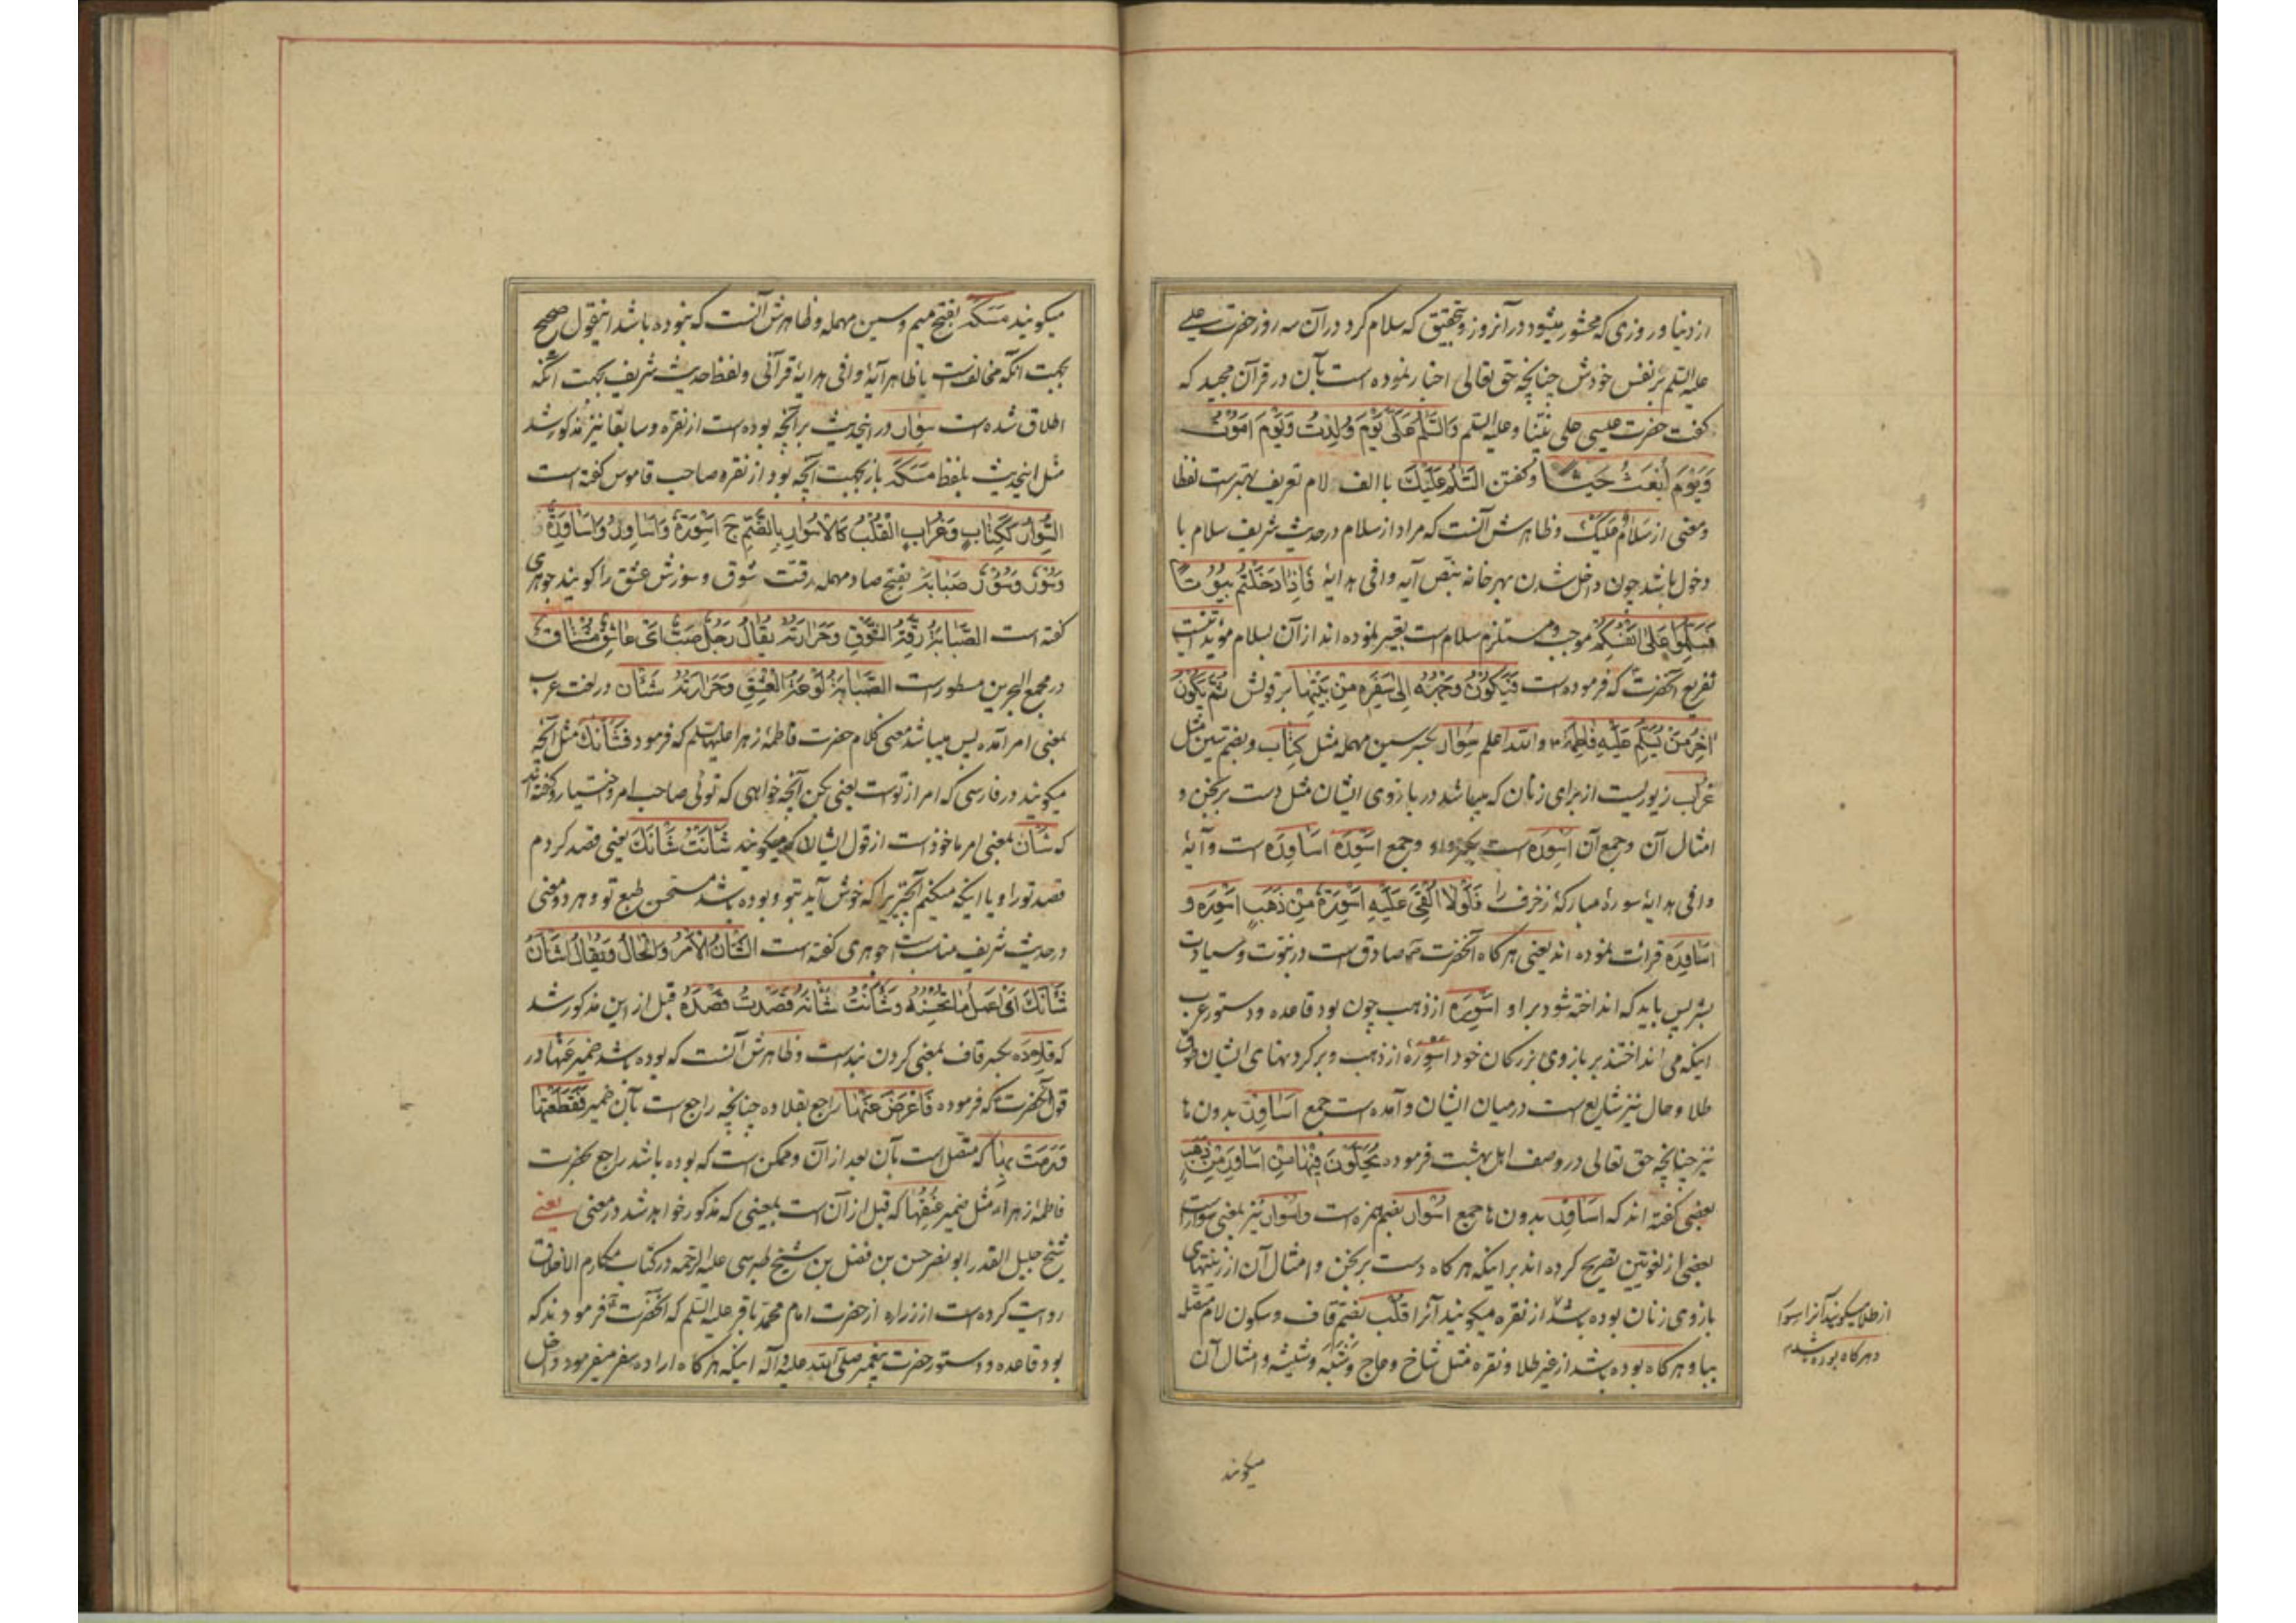 از دنیا و روزی که محشور میشود در آنروز و بتحقیق که سلام کرد در آن سه روز حضرت عیسی
علیه السلم بر نفس خودش چنانچه حق تعالی اخبار نموده است بآن در قرآن مجید که
گفت حضرت عیسی علی نبینا و علیه السلم وَالسَّلٰمُ عَلَیَّ یَوْمَ وُلِدْتُ وَیَوْمَ اَمُوْتُ
وَیَوْمَ اُبْعَثُ حَیًّا و گفتن السَّلٰمُ عَلَیْكَ با الف لام تعریف بهترست لفظا
و معنی از سَلَامٌ عَلَیْكَ و ظاهرش آنست که مراد از سلام در حدیث شریف سلام با
دخول باشد چون داخل شدن بهر خانه بنص آیه وافی هدایهٔ فَاِذَا دَخَلْتُمْ بُیُوْتًا
فَسَلِّمُوا عَلٰی اَنْفُسِكُمْ موجب و مستلزم سلام است تعبیر نموده اند از آن بسلام مؤید اینست
تفریع آنحضرت که فرموده است فَیَكُوْنُ وَجْهُهُ اِلٰی سَفَرِهِ مِنْ بَیْتِهَا بر قولش ثُمَّ یَكُوْنُ
اٰخِرُ مَنْ یُسَلِّمُ عَلَیْهِ فَاطِمَةُ و الله اعلم سِوَار بکسر سین مهمله مثل كِتَاب و بضم سین مثل
غُرَاب زیوریست از برای زنان که میباشد در بازوی ایشان مثل دست برنجن و
امثال آن و جمع آن اَسْوِرَة است بکسر واو و جمع اَسْوِرَة اَسَاوِرَة است و آیهٔ
وافی هدایهٔ سورهٔ مبارکهٔ زخرف را فَلَوْلَا اُلْقِیَ عَلَیْهِ اَسْوِرَةٌ مِنْ ذَهَبٍ اَسْوِرَة و
اَسَاوِرَة قرائت نموده اند یعنی هر گاه آنحضرت صادق است در نبوت و سیادت
بشر پس باید که انداخته شود بر او اَسْوِرَه از ذهب چون بود قاعده و دستور عرب
اینکه می انداختند بر بازوی بزرگان خود اسورهٔ از ذهب و بر گردنهای ایشان طوق
طلا و حال نیز شایع است در میان ایشان و آمده است جمع اَسَاوِر بدون ها
نیز چنانچه حق تعالی در وصف اهل بهشت فرموده یُحَلَّوْنَ فِیْهَا مِنْ اَسَاوِرَ مِنْ ذَهَبٍ
بعضی گفته اند که اَسَاوِر بدون ها جمع اُسْوَار بضم همزه است و اُسْوَار نیز بمعنی سوار است
بعضی از لغویین تصریح کرده اند بر اینکه هر گاه دست برنجن و امثال آن از زینتهای
بازوی زنان بوده باشد از نقره میگویند آنرا قُلْب بضم قاف و سکون لام متصله
ببا و هر گاه بوده باشد از غیر طلا و نقره مثل شاخ و عاج و شَبَه و شیشه و امثال آن
از طلا میگویند آنرا سوار
و هر گاه بوده باشد
میگویند
میگویند مَسَكَه بفتح میم و سین مهمله و ظاهرش آنست که نبوده باشد اینقول صحیح
بجهت آنکه مخالفست با ظاهر آیهٔ وافی هدایهٔ قرآنی و لفظ حدیث شریف بجهت آنکه
اطلاق شده است سِوَار در اینحدیث بر آنچه بوده است از نقره و سابقا نیز مذکور شد
مثل اینحدیث بلفظ مَسَكَه باز بجهت آنچه بود از نقره صاحب قاموس گفته است
السِّوَارُ كَكِتَابٍ وَغُرَابٍ الْقُلْبُ كَالْاُسْوَارِ بِالضَّمِّ ج اَسْوِرَةٌ وَاَسَاوِرُ وَاَسَاوِرَةٌ
وَسُوْرٌ وَسُؤُوْرٌ صَبَابَة بفتح صاد مهمله رقت شوق و سوزش عشق را گویند جوهری
گفته است الصَّبَابَةُ رِقَّةُ الشَّوْقِ وَحَرَارَتُهُ یُقَالُ رَجُلٌ صَبٌّ اَیْ عَاشِقٌ مُشْتَاقٌ
در مجمع البحرین مسطور است الصَّبَابَةُ لَوْعَةُ الْعِشْقِ وَحَرَارَتُهُ شَأْن در لغت عرب
بمعنی امر آمده پس میباشد معنی کلام حضرت فاطمهٔ زهرا علیها السلم که فرمود فَشَأْنَكَ مثل آنچه
میگویند در فارسی که امر از توست یعنی بکن آنچه خواهی که توئی صاحب امر و اختیار و گفته اند
که شَأْن بمعنی امر ماخوذ است از قول ایشان که میگویند شَأَنْتُ شَأْنَكَ یعنی قصد کردم
قصد تو را و یا اینکه میکنم آنچیزیرا که خوش آید بتو و بوده باشد مستحسن طبع تو و هر دو معنی
در حدیث شریف مناسب است جوهری گفته است الشَّأْنُ الْاَمْرُ وَالْحَالُ وَیُقَالُ اشْأَنْ
شَأْنَكَ اَیْ اعْمَلْ مَا تُحْسِنُهُ وَشَأَنْتُ شَأْنَهُ قَصَدْتُ قَصْدَهُ قبل از این مذکور شد
که قِلَادَه بکسر قاف بمعنی گردن بندست و ظاهرش آنست که بوده باشد ضمیر عَنْهَا در
قول آنحضرت که فرموده فَاَعْرَضَ عَنْهَا راجع بقلاده چنانچه راجع است بآن ضمیر فَقَطَعَتْهَا
فَرَمَتْ بِهَا که متصل است بآن بعد از آن و ممکن است که بوده باشد راجع بحضرت
فاطمهٔ زهراء مثل ضمیر عُنُقِهَا که قبل از آن است بمعنیی که مذکور خواهد شد در معنی یعنی
شیخ جلیل القدر ابو نصر حسن بن فضل بن شیخ طبرسی علیه الرحمه در کتاب مکارم الاخلاق
روایت کرده است از زراره از حضرت امام محمد باقر علیه السلم که آنحضرت فرمودند که
بود قاعده و دستور حضرت پیغمبر صلی الله علیه و آله اینکه هر گاه اراده سفر میفرمود داخل